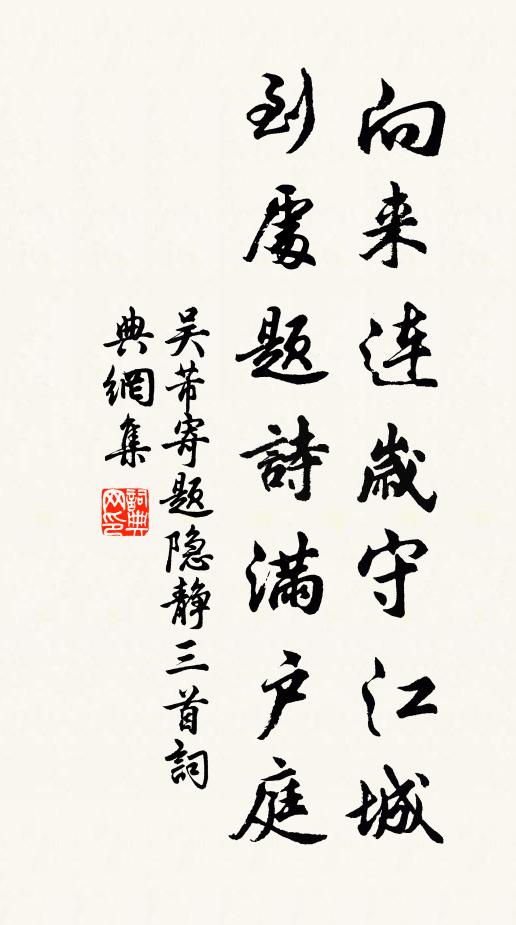 向来连歳守江城
到處题詩满户庭
吴芾寄题隐静三首詞
典網集
詞典網印